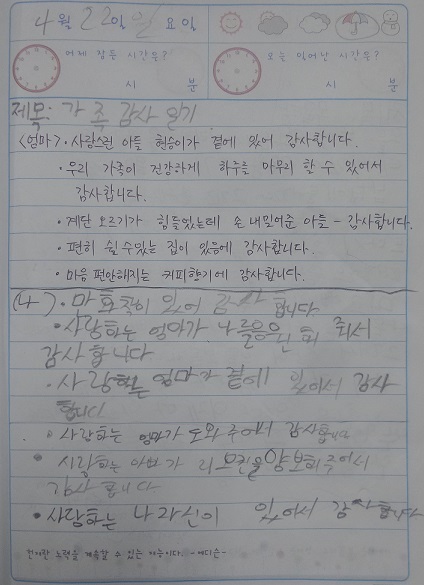 4월 22일 일 요일
어제 잠든 시간은?
오늘 일어난 시간은?
시 분
시 분
제목: 가족 감사 일기
<엄마>·사랑스런 아들 현승이가 곁에 있어 감사합니다.
·우리 가족이 건강하게 하루를 마무리 할 수 있어서
감사합니다.
·계단 오르기가 힘들었는데 손 내밀어준 아들 - 감사합니다.
·편히 쉴 수 있는 집이 있음에 감사합니다.
·마음 편안해지는 커피향기에 감사합니다.
<나>·만화책이 있어 감사합니다
·사랑하는 엄마가 나를 줘서
감사합니다
·사랑하는 엄마가 곁에 있어서 감사
합니다
·사랑하는 엄마가 도와주어서 감사합니다
·사랑하는 아빠가 리모컨을 양보해주어서
감사합니다
·사랑하는 나 자신이 있어서 감사합니다
천재란 노력을 계속할 수 있는 재능이다. -에디슨-